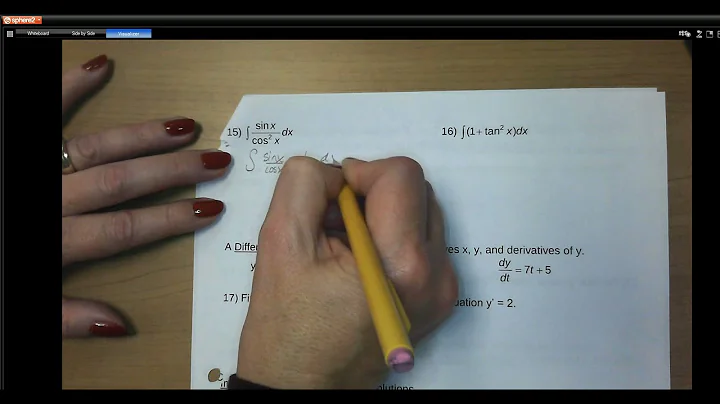 sphere2
Whiteboard Side by Side Visualizer
15) ∫ sin x / cos² x dx
16) ∫(1 + tan² x)dx
∫ sinx
A Differ
ves x, y, and derivatives of y.
y
dy/dt = 7t + 5
17) Fi
uation y' = 2.
olutions